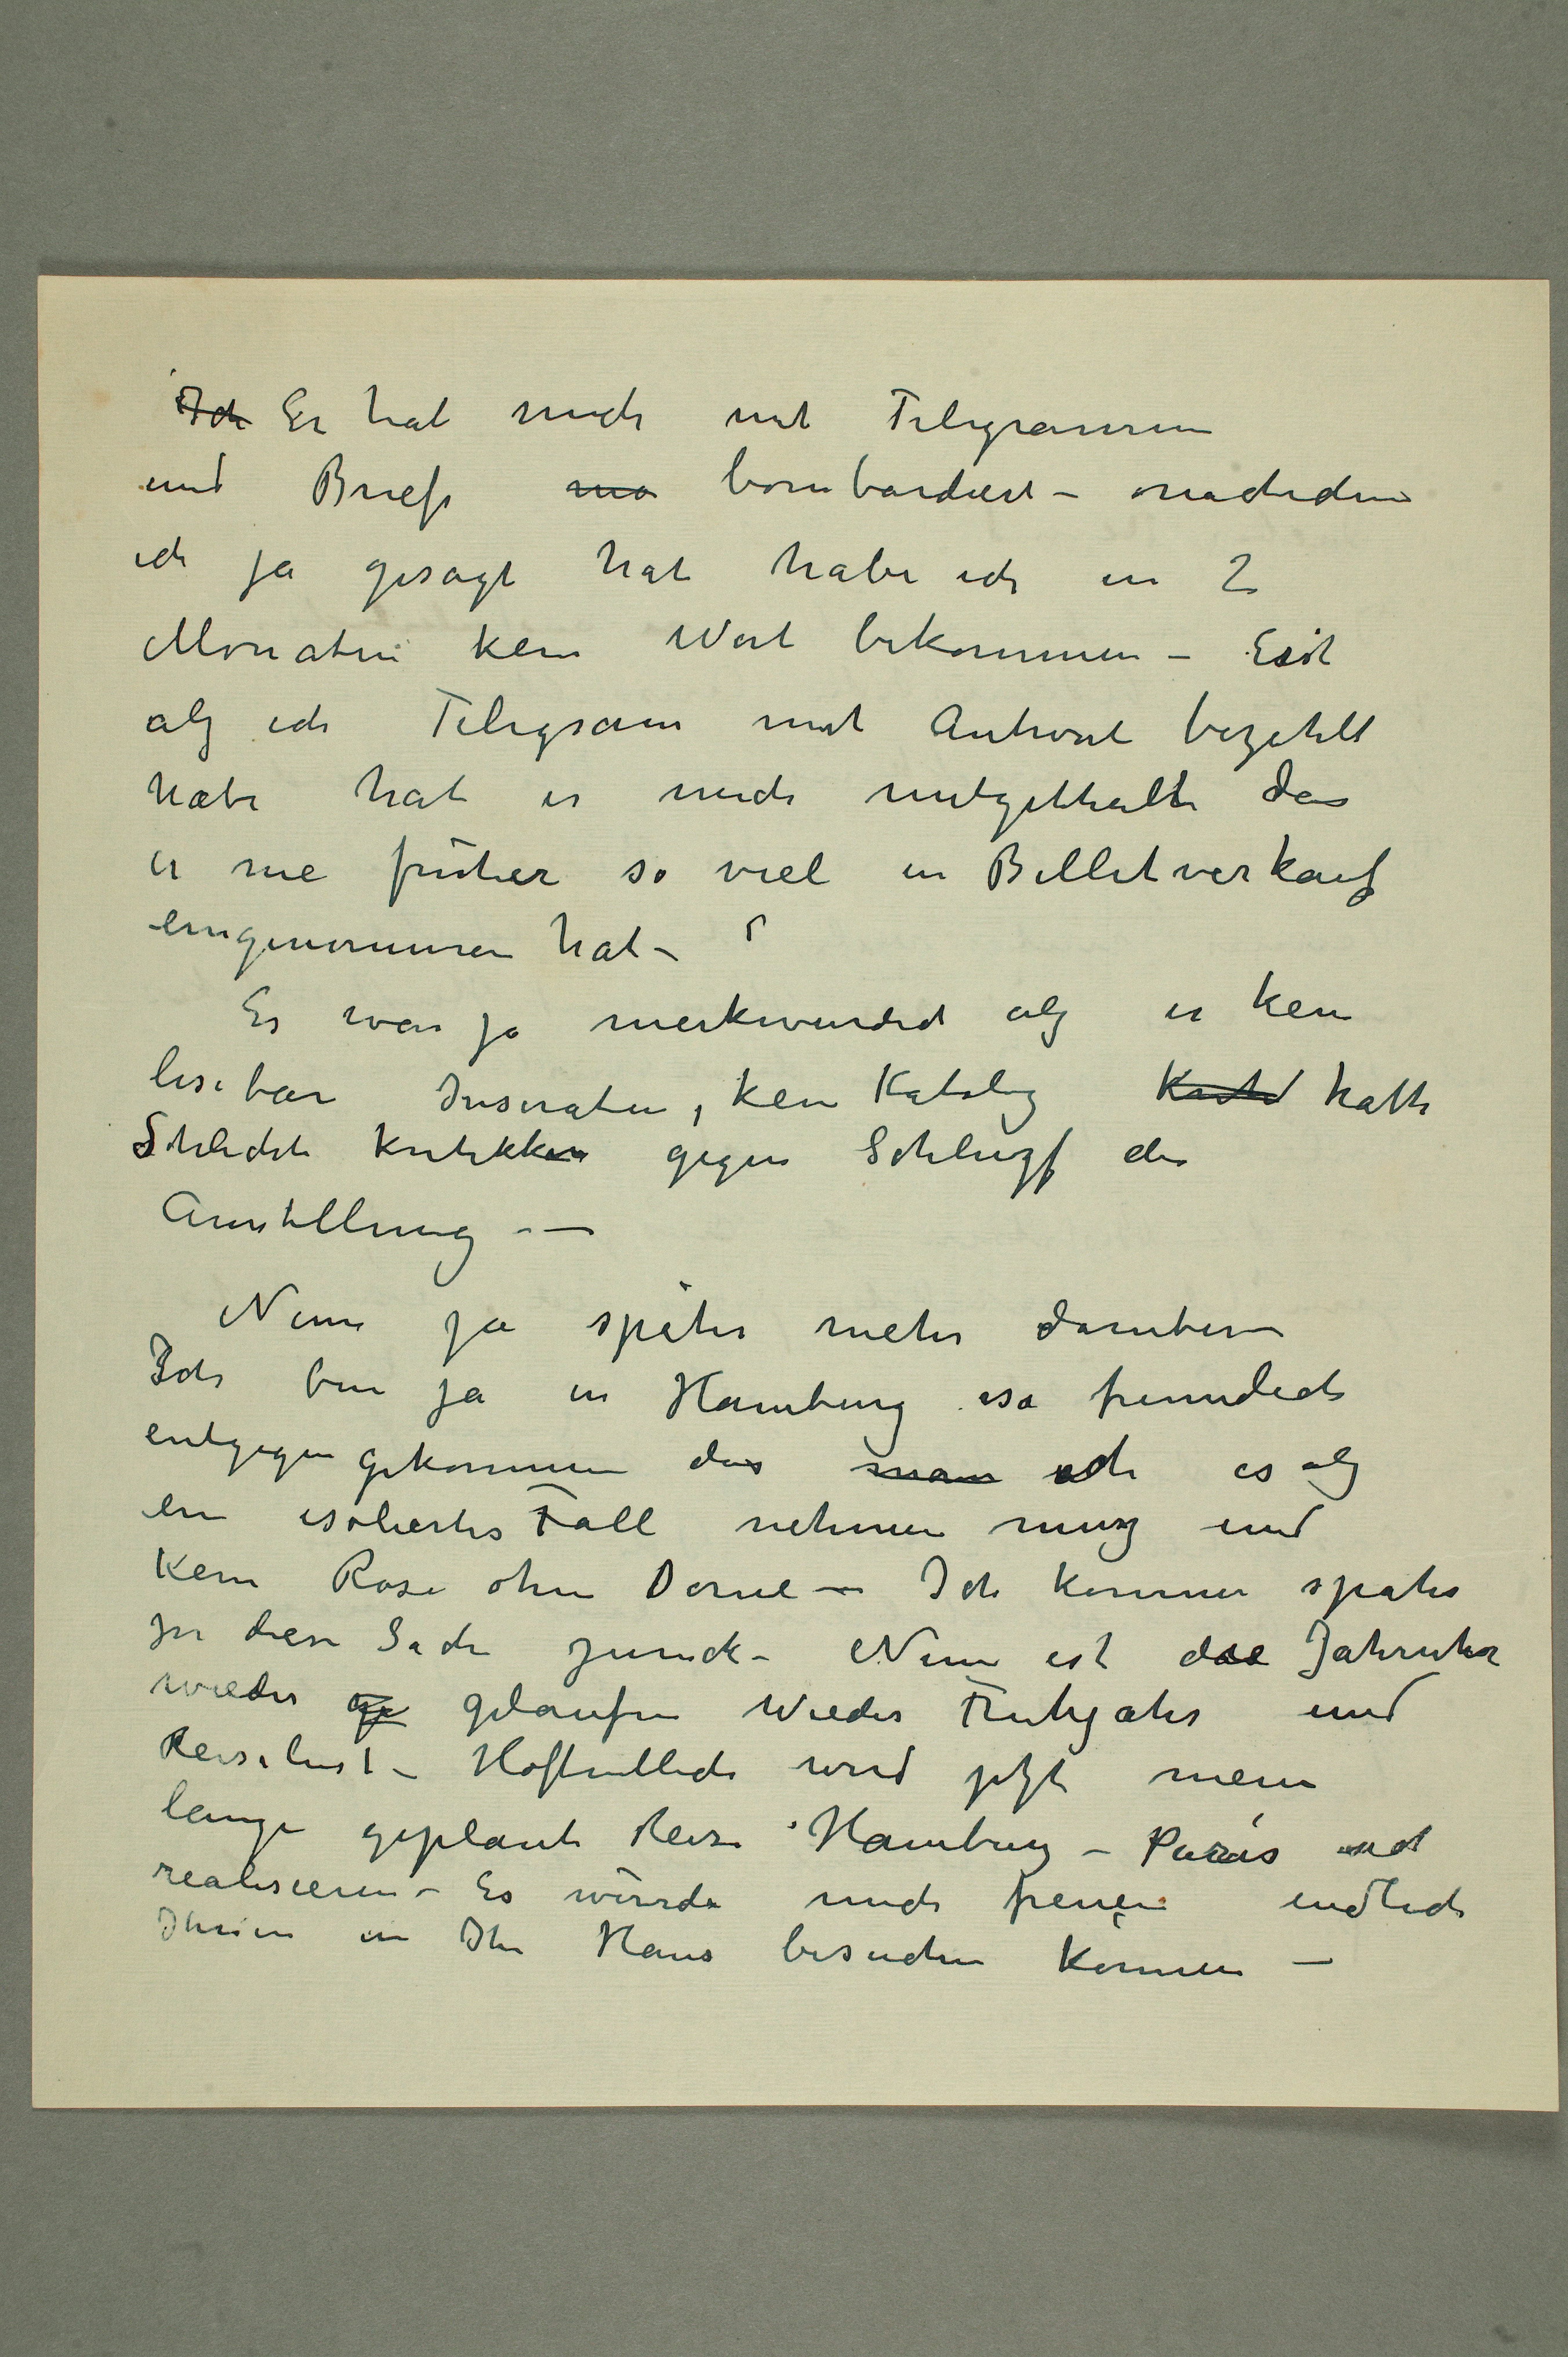 Ich Er hat mich mit Telegrammen
und Briefe ma bombardiert – nachdem
ich ja gesagt hat habe ich in 2
Monaten kein Wort bekommen – Erst
als ich Telegram mit Antwort bezahlt
habe hat er mich mitgetheilt das
er nie früher so viel in Billetverkauf
eingenommen hat –
Es war ja merkwürdich als er kein
lesebar Inseraten, kein Katolog Kritik hatte
Schlechte Kritikken gegen Schlusz der
Ausstellung – –
Nun ja später mehr daruber –
Ich bin ja in Hamburg so freundlich
entgegen gekommen das man ich es als
ein isoliertes Fall nehmen musz und
kein Rose ohne Dorne – Ich komme später
zu diese Sache zurück – Nun ist die Jahruhr
wieder ge gelaufen Wieder Fruhjahr und
Reiselust – Hoffentlich wird jetzt mein
lange geplante Reise Hamburg – Paris sich
realisieren – Es würde mich freuen endlich
Ihnen in Ihr Haus besuchen können –